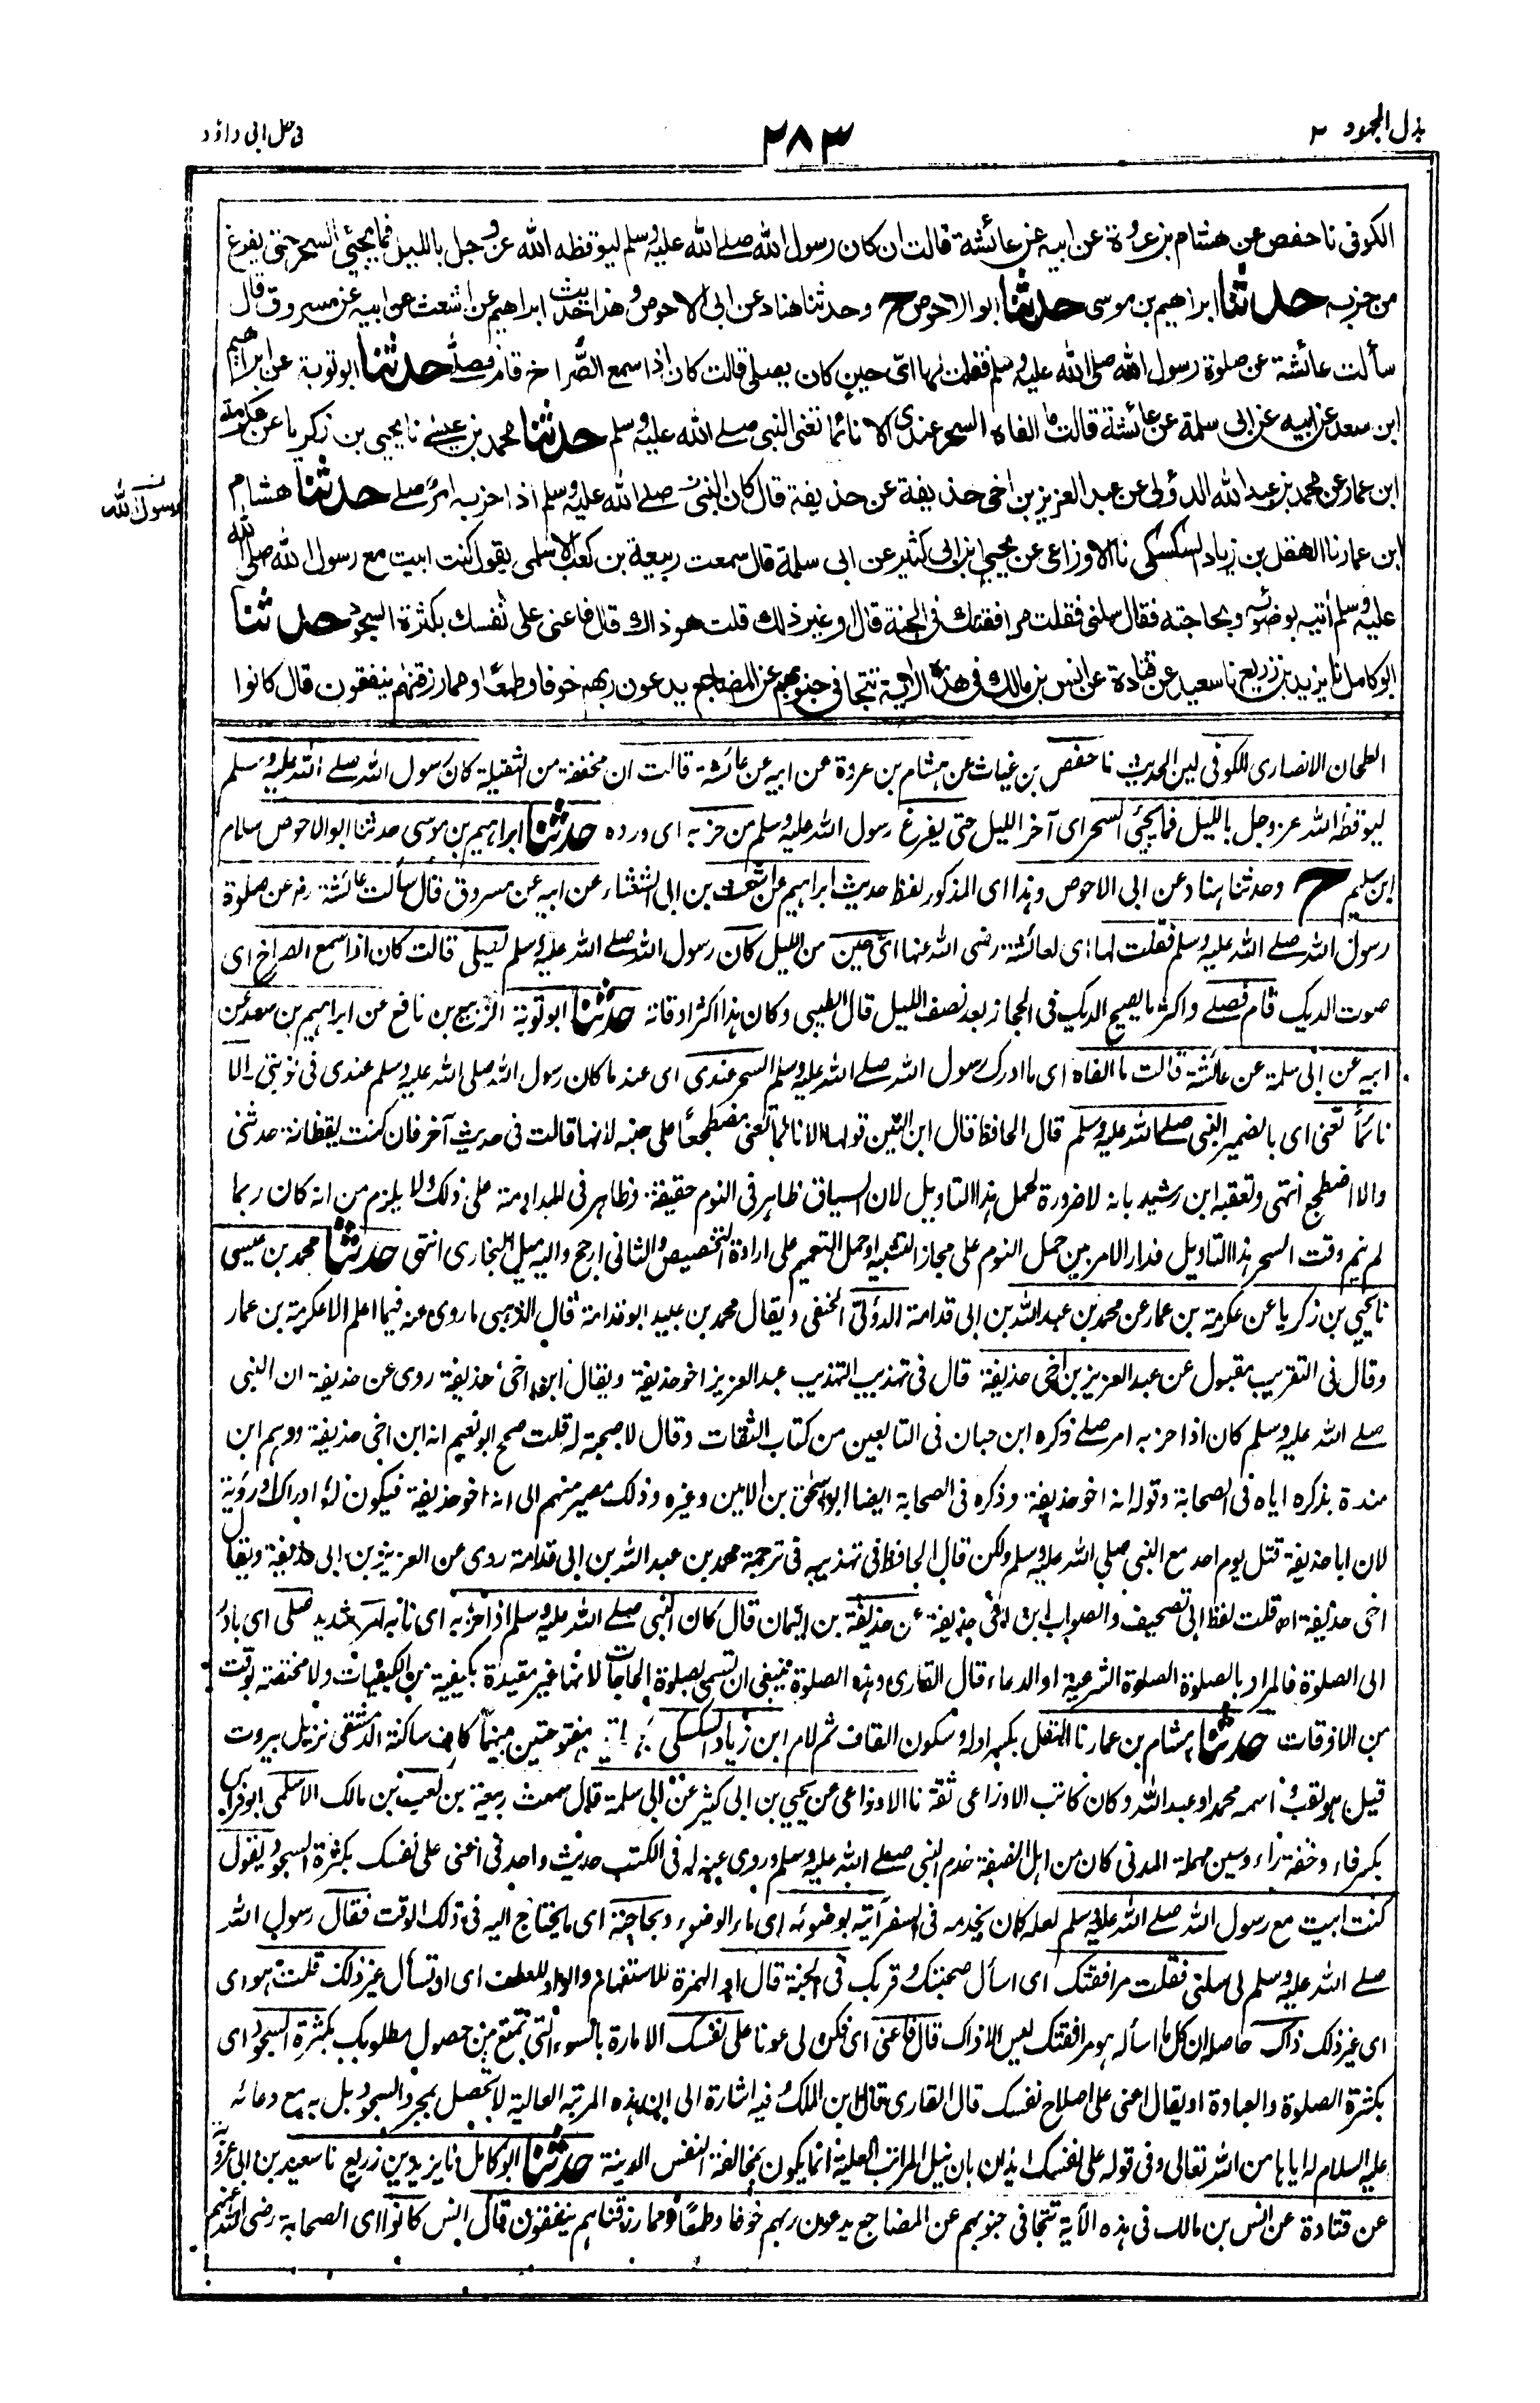 بذل المجهود ٢
٢٨٣
فى حل ابى داؤد
الكوفى نا حفص عن هشام بن عروة عن ابيه عن عائشة قالت ان كان رسول الله صلے الله عليه وسلم ليوقظه الله عز وجل بالليل فما يجيئ السحر حتى يفرغ
من حزبه حدثنا ابراهيم بن موسى حدثنا ابو الاحوص ح وحدثنا هناد عن ابى الاحوص وهذا حديث ابراهيم عن اشعث عن ابيه عن مسروق قال
سألت عائشة عن صلوة رسول الله صلى الله عليه وسلم فقلت لها اىّ حين كان يصلى قالت كان اذا سمع الصُّراخ قام فصلّٰے حدثنا ابو توبة عن ابراهيم
ابن سعد عن ابيه عن ابى سلمة عن عائشة قالت ما الفاه السحر عندى الا نائما تعنى النبى صلے الله عليه وسلم حدثنا محمد بن عيسٰے نا يحيى بن زكريا عن عكرمة
ابن عمار عن محمد بن عبد الله الدؤلى عن عبد العزيز بن اخى حذيفة عن حذيفة قال كان النبى صلے الله عليه وسلم اذا حزبه امرٌ صلے حدثنا هشام
رسول الله
ابن عمار نا الهقل بن زياد السكسكى نا الاوزاعى عن يحيى ابن ابى كثير عن ابى سلمة قال سمعت ربيعة بن كعب الاسلمى يقول كنت ابيت مع رسول الله صلى الله
عليه وسلم أتيه بوضوئه وبحاجته فقال سلنى فقلت مرافقتك فى الجنة قال او غير ذلك قلت هو ذاك قال فاعنى على نفسك بكثرة السجود حدثنا
ابو كامل نا يزيد بن زريع نا سعيد عن قتادة عن انس بن مالك فى هذه الاية تتجافى جنوبهم عن المضاجع يدعون ربهم خوفا وطمعًا ومما رزقنهم ينفقون قال كانوا
الطحان الانصارى الكوفى لين الحديث نا حفص بن غياث عن هشام بن عروة عن ابيه عن عائشة قالت ان مخففة من الثقيلة كان رسول الله صلے الله عليه وسلم
ليوقظه الله عز وجل بالليل فما يجيئ السحر اى آخر الليل حتى يفرغ رسول الله عليه وسلم من حزبه اى ورده حدثنا ابراهيم بن موسى حدثنا ابو الاحوص سلام
ابن سليم ح وحدثنا هناد عن ابى الاحوص وهذا اى المذكور لفظ حديث ابراهيم عن اشعث بن ابى الشعثاء عن ابيه عن مسروق قال سألت عائشة رض عن صلوة
رسول الله صلے الله عليه وسلم فقلت لها اى لعائشة رضى الله عنها اىّ حين من الليل كان رسول الله صلے الله عليه وسلم يصلى قالت كان اذا سمع الصراخ اى
صوت الديك قام فصلے واكثر ما يصيح الديك فى الحجاز بعد نصف الليل قال الطيبى وكان هذا اكثر اوقاته حدثنا ابو توبة الربيع بن نافع عن ابراهيم بن سعد عن
ابيه عن ابى سلمة عن عائشة قالت ما الفاه اى ما ادرك رسول الله صلے الله عليه وسلم السحر عندى اى عند ما كان رسول الله صلى الله عليه وسلم عندى فى نوبتى الا
نائما تعنى اى بالضمير النبى صلے الله عليه وسلم قال الحافظ قال ابن التين قولها الا نائما تعنى مضطجعًا على جنبه لانها قالت فى حديث آخر فان كنت يقظانة حدثنى
والا اضطجع انتهى وتعقبه ابن رشيد بانه لا ضرورة لحمل هذا التاويل لان السياق ظاهر فى النوم حقيقة وظاهر فى المداومة على ذلك ولا يلزم من انه كان ربما
لم ينم وقت السحر هذا التاويل فدار الامر بين حمل النوم على مجاز التشبيه او حمل التعميم على ارادة التخصيص والثانى ارجح واليه ميل البخارى انتهى حدثنا محمد بن عيسى
نا يحيى بن زكريا عن عكرمة بن عمار عن محمد بن عبد الله بن ابى قدامة الدؤلى الحنفى ويقال محمد بن عبيد ابو قدامة قال الذهبى ما روى عنه فيما اعلم الا عكرمة بن عمار
وقال فى التقريب مقبول عن عبد العزيز بن اخى حذيفة قال فى تهذيب التهذيب عبد العزيز اخو حذيفة ويقال ابن اخى حذيفة روى عن حذيفة ان النبى
صلے الله عليه وسلم كان اذا حزبه امر صلے ذكره ابن حبان فى التابعين من كتاب الثقات وقال لا صحبة له قلت صحح ابو نعيم انه ابن اخى حذيفة ووهم ابن
مندة بذكره اياه فى الصحابة وقوله انه اخو حذيفة وذكره فى الصحابة ايضا ابو اسحق بن الامين وغيره وذلك مصير منهم الى انه اخو حذيفة فيكون له ادراك ورؤية
لان ابا حذيفة قتل يوم احد مع النبى صلى الله عليه وسلم ولكن قال الحافظ فى تهذيبه فى ترجمة محمد بن عبد الله بن ابى قدامة روى عن العزيز بن ابى حذيفة ويقال
اخى حذيفة اھ قلت لفظ ابى تصحيف والصواب ابن اخى حذيفة عن حذيفة بن اليمان قال كان النبى صلے الله عليه وسلم اذا حزبه اى نابه امر شديد صلى اى بادر
الى الصلوة فالمراد بالصلوة الصلوة الشرعية او الدعاء قال القارى وهذه الصلوة ينبغى ان تسمى بصلوة الحاجات لانها غير مقيدة بكيفية من الكيفيات ولا مختصة بوقت
من الاوقات حدثنا هشام بن عمار نا الهقل بكسر اوله وسكون القاف ثم لام ابن زياد السكسكى بمفتوحتين بينهما كاف ساكنة الدمشقى نزيل بيروت
قيل هو لقب واسمه محمد او عبد الله وكان كاتب الاوزاعى ثقة نا الاوزاعى عن يحيى بن ابى كثير عن ابى سلمة قال سمعت ربيعة بن كعب بن مالك الاسلمى ابو فراس
بكسر فاء وخفة راء وسين مهملة المدنى كان من اهل الصفة خدم النبى صلے الله عليه وسلم وروى عنه له فى الكتب حديث واحد فى اعنى على نفسك بكثرة السجود يقول
كنت ابيت مع رسول الله صلے الله عليه وسلم لعله كان يخدمه فى السفر آتيه بوضوئه اى ماء الوضوء وبحاجته اى ما يحتاج اليه فى ذلك الوقت فقال رسول الله
صلے الله عليه وسلم لى سلنى فقلت مرافقتك اى اسأل صحبتك وقربك فى الجنة قال او الهمزة للاستفهام والواو للعطف اى او تسأل غير ذلك قلت هو اى
اى غير ذلك ذاك حاصله ان كل ما اسأله هو مرافقتك ليس الا ذاك قال فاعنى اى فكن لى عونا على نفسك الامارة بالسوء التى تمنع من حصول مطلوبك بكثرة السجود اى
بكثرة الصلوة والعبادة او يقال اعنى على اصلاح نفسك قال القارى قال ابن الملك وفيه اشارة الى ان هذه المرتبة العالية لا تحصل بمجرد السجود بل به مع دعائه
عليه السلام له اياها من الله تعالى وفى قوله على نفسك ايذان بان نيل المراتب العلية انما يكون بمخالفة النفس الدنية حدثنا ابو كامل نا يزيد بن زريع نا سعيد بن ابى عروبة
عن قتادة عن انس بن مالك فى هذه الآية تتجافى جنوبهم عن المضاجع يدعون ربهم خوفا وطمعًا ومما رزقناهم ينفقون قال انس كانوا اى الصحابة رضى الله عنهم